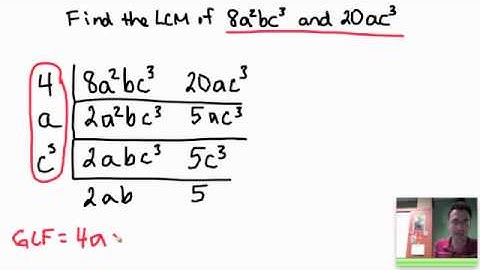 Find the LCM of 8a²bc³ and 20ac³
4 8a²bc³ 20ac³
a 2a²bc³ 5ac³
c³ 2abc³ 5c³
2ab 5
GCF = 4a